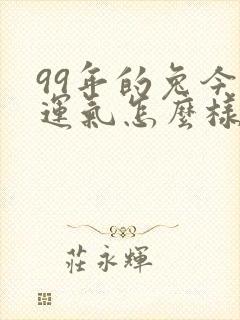 99年的兔今
運氣怎麼樣
莊永輝